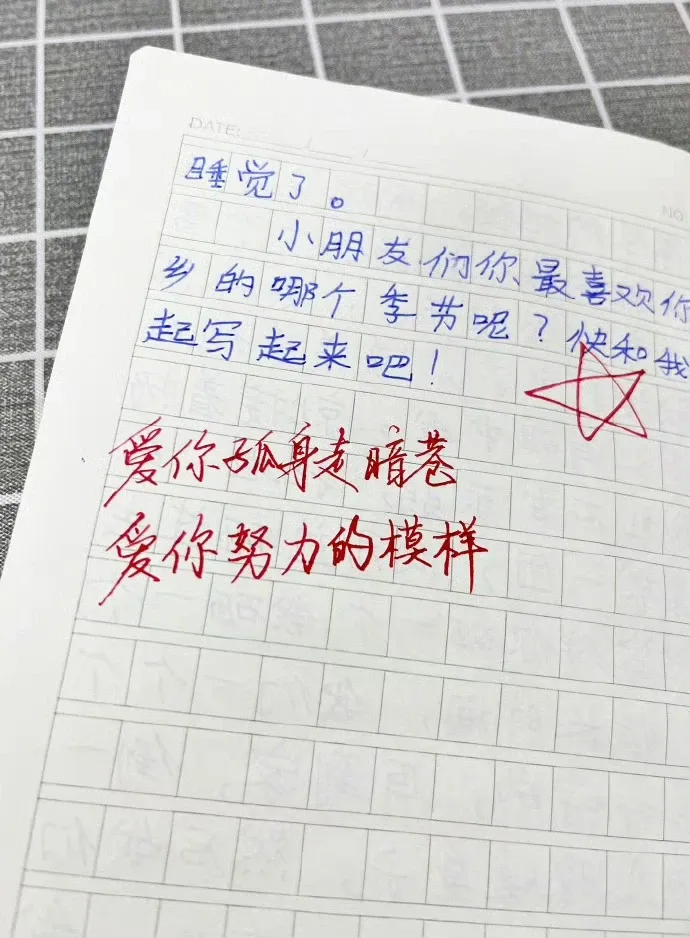 DATE:
NO
睡觉了。
小朋友们你最喜欢你
乡的哪个季节呢？快和我
起写起来吧！
爱你孤身走暗巷
爱你努力的模样